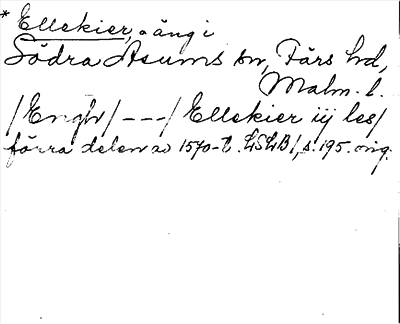 * Ellekier, a äng i
Södra Åsums sn, Färs hd,
Malm. l.
/Engh/ - - - / Ellekier iij les/
förra delen av 1570-t. LSLB/, s. 195. orig.